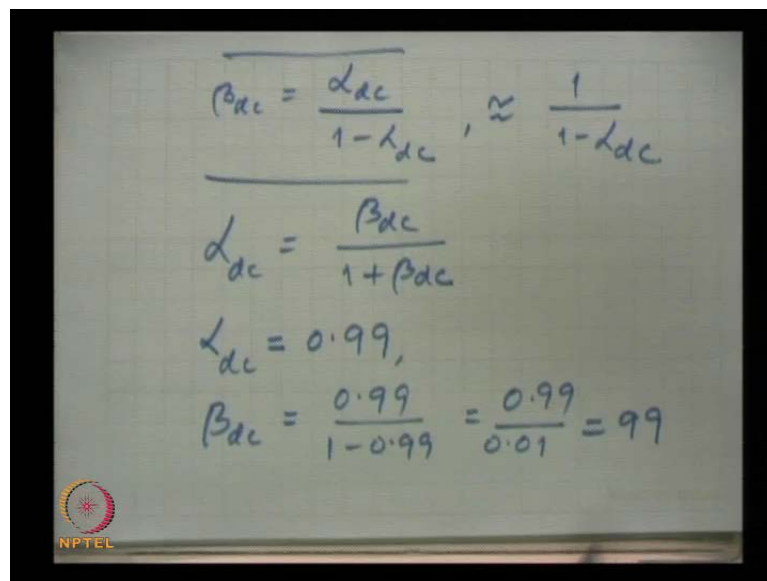 βdc = αdc / 1 - αdc , ≈ 1 / 1 - αdc
αdc = βdc / 1 + βdc
αdc = 0.99,
βdc = 0.99 / 1 - 0.99 = 0.99 / 0.01 = 99
NPTEL